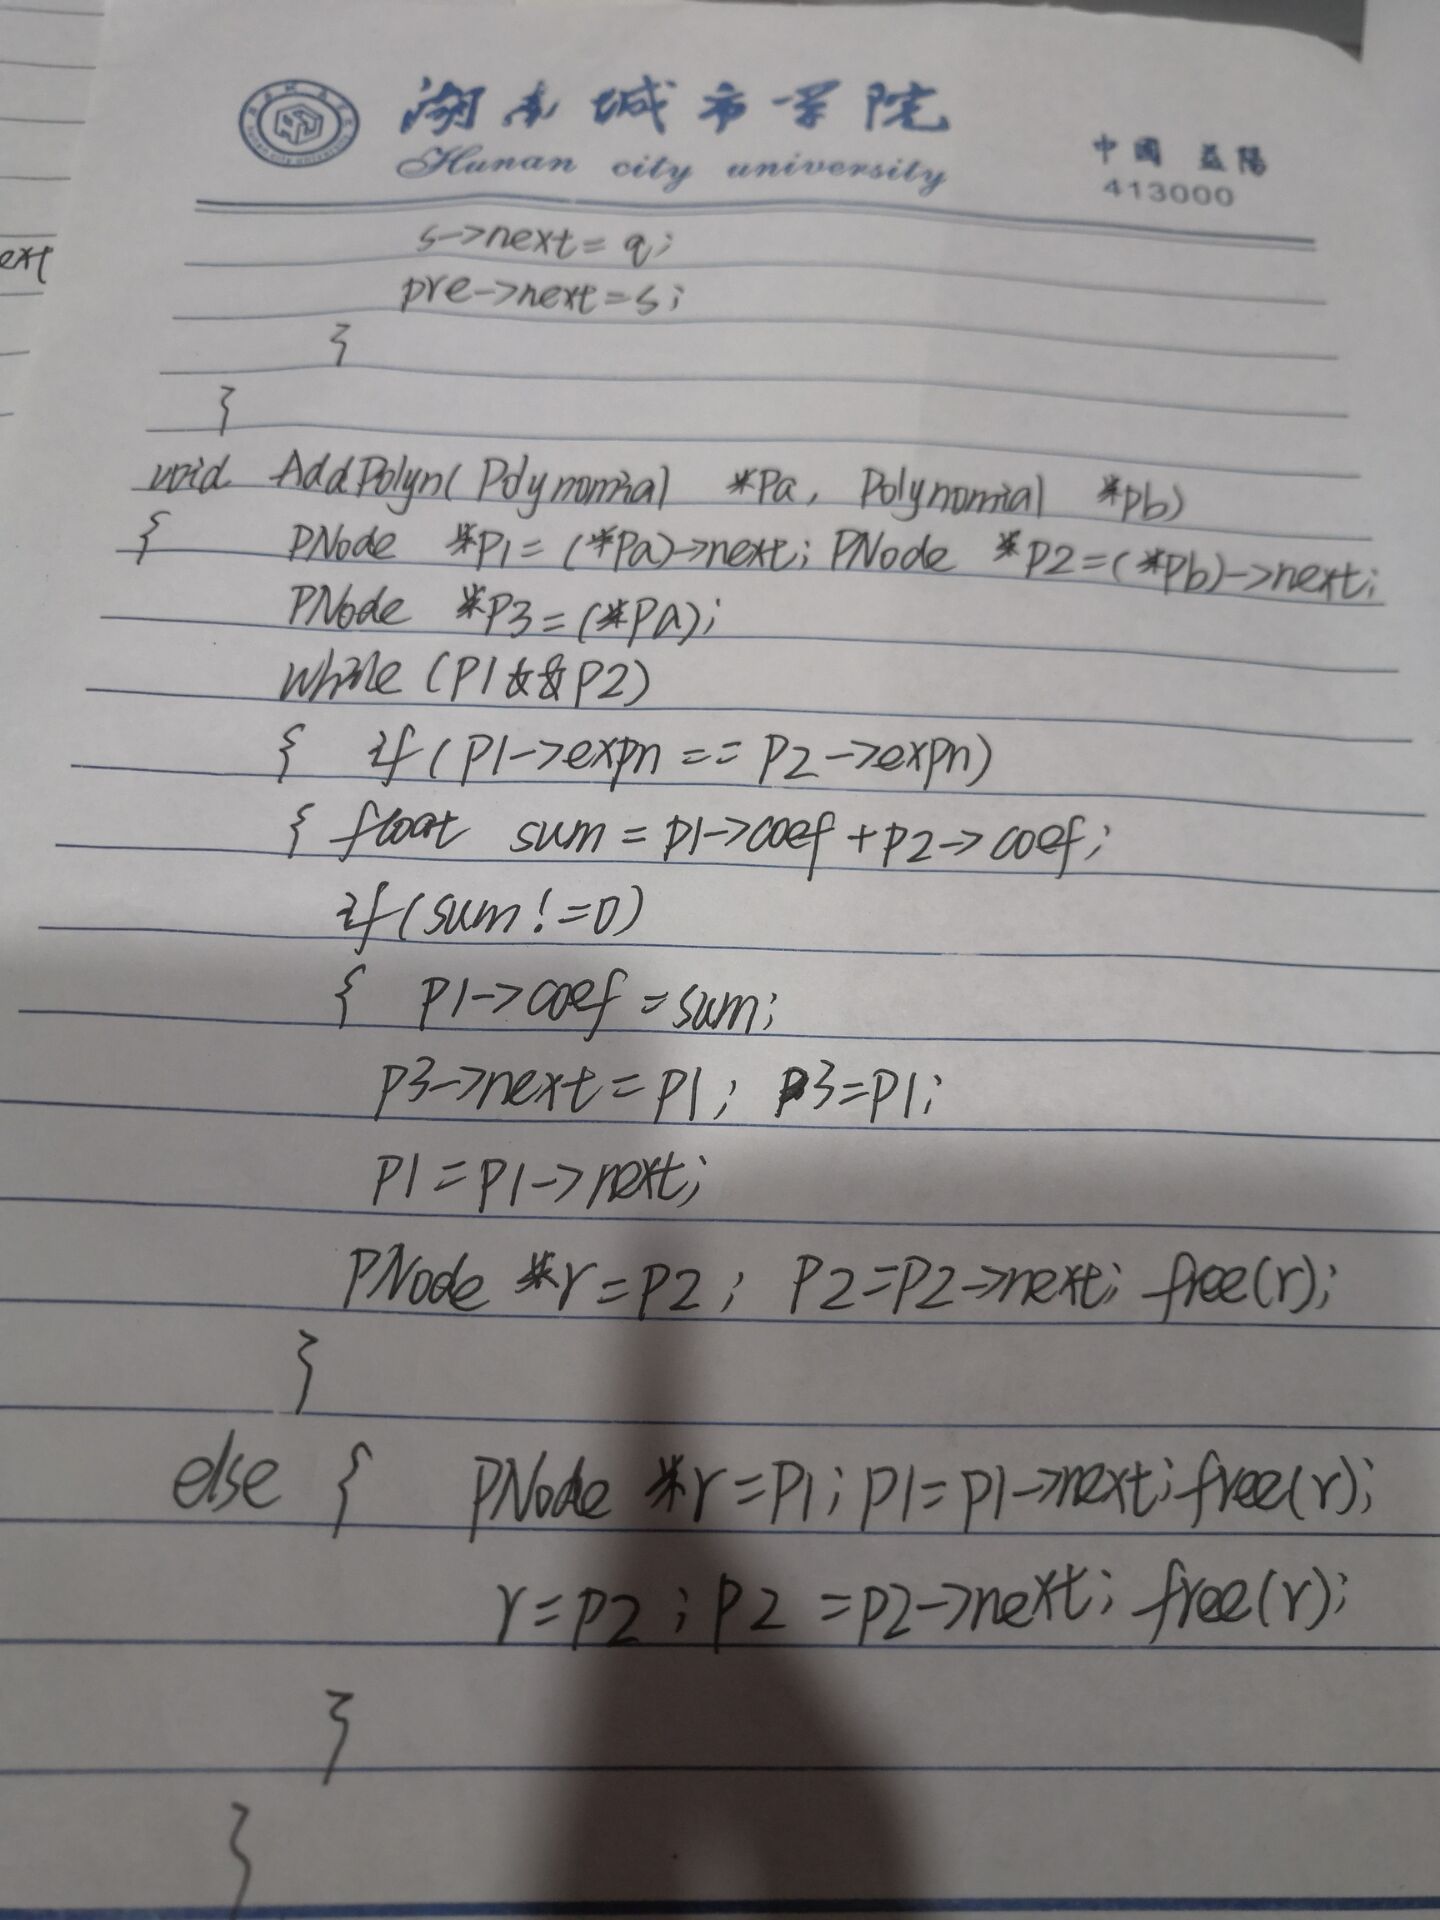 湖南城市学院
Hunan city university
中國 益陽
413000
s->next=q;
ext
pre->next=s;
}
}
void AddPolyn(Polynomial *Pa, Polynomial *pb)
{ PNode *P1=(*Pa)->next; PNode *P2=(*Pb)->next;
PNode *P3=(*Pa);
while (P1&&P2)
{ if(P1->expn==P2->expn)
{ float sum=P1->coef+P2->coef;
if(sum!=0)
{ P1->coef=sum;
P3->next=P1; P3=P1;
P1=P1->next;
PNode *r=P2; P2=P2->next; free(r);
}
else { PNode *r=P1; P1=P1->next; free(r);
r=P2; P2=P2->next; free(r);
}
}